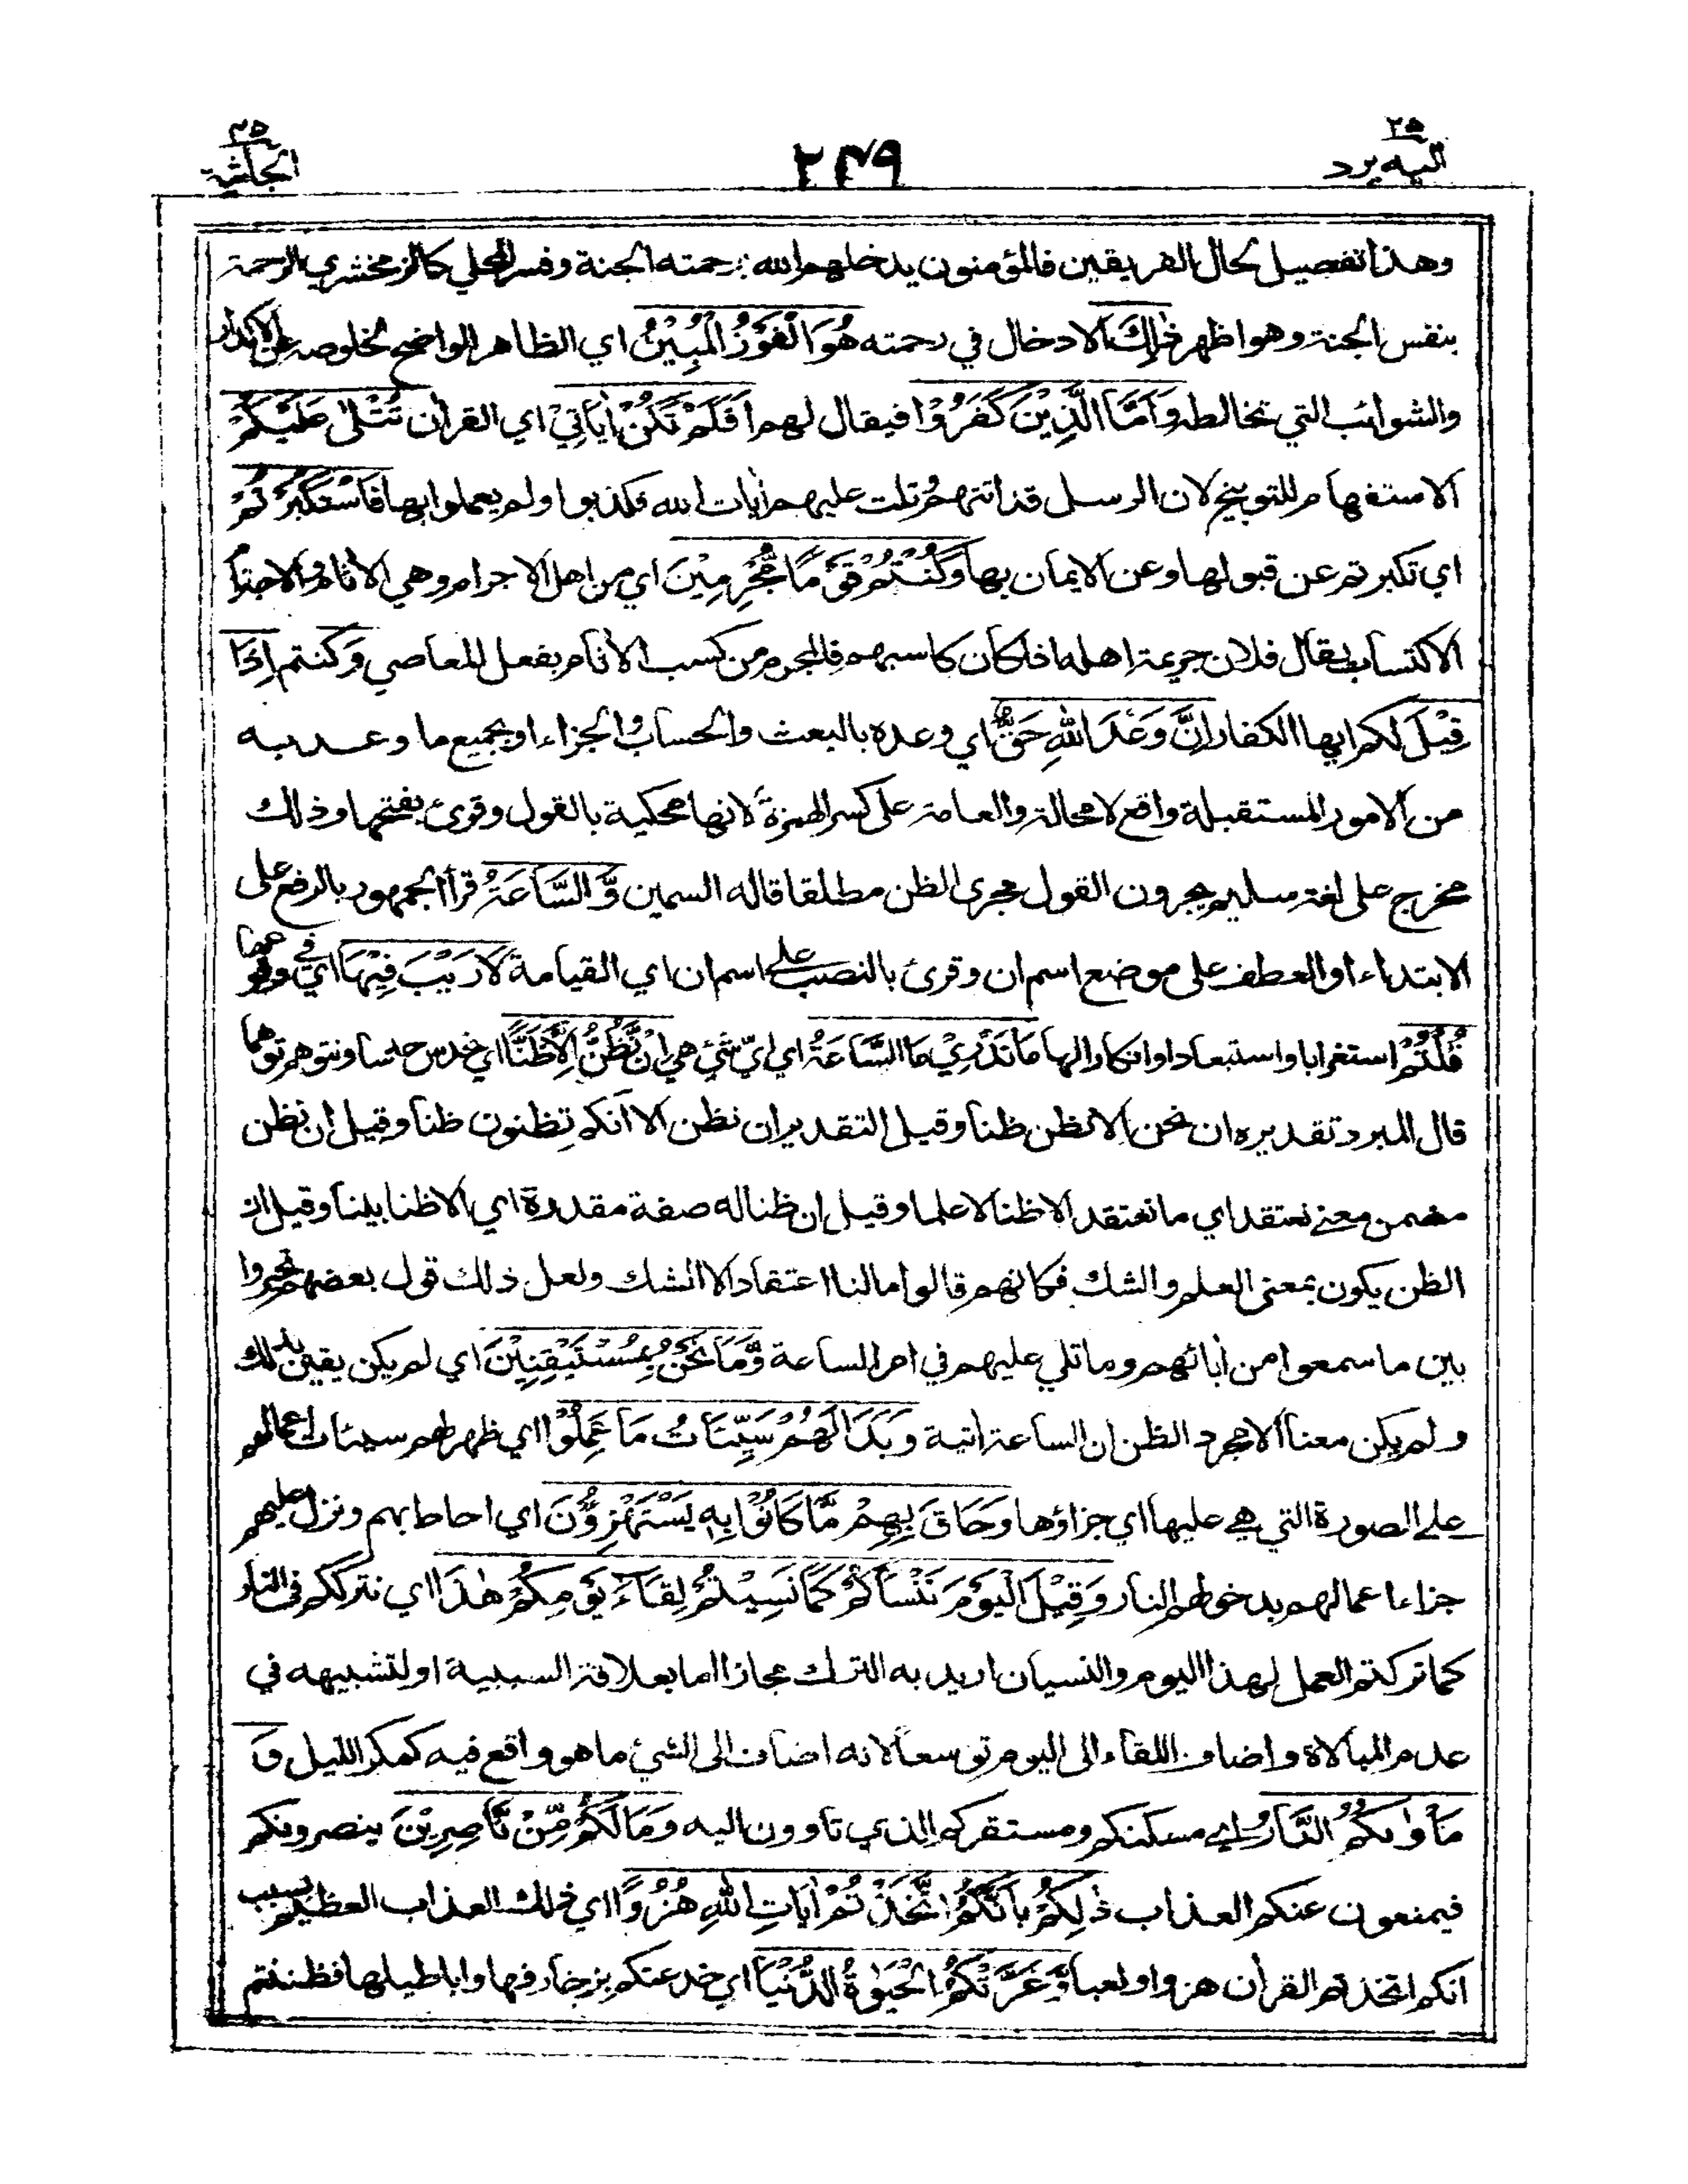 ٢٥ اليه يرد
٢٤٩
٤٥ الجاثية
وهذا تفصيل لحال الفريقين فالمؤمنون يدخلهم الله برحمته الجنة وفسر المحلي كالزمخشري الرحمة
بنفس الجنة وهو اظهر ذٰلِكَ الادخال في رحمته هُوَ الْفَوْزُ الْمُبِيْنُ اي الظاهر الواضح لخلوصه عن الاكدار
والشوائب التي تخالطه وَاَمَّا الَّذِيْنَ كَفَرُوْا فيقال لهم اَفَلَمْ تَكُنْ اٰيَاتِيْ اي القراٰن تُتْلٰى عَلَيْكُمْ
الاستفهام للتوبيخ لان الرسل قد اتتهم وتلت عليهم اٰيات الله فكذبوا ولم يعملوا بها فَاسْتَكْبَرْتُمْ
اي تكبرتم عن قبولها وعن الايمان بها وَكُنْتُمْ قَوْمًا مُّجْرِمِيْنَ اي من اهل الاجرام وهي الاٰثام والاجترام
الاكتساب يقال فلان جريمة اهله اذا كان كاسبهم فالمجرم من كسب الاٰثام بفعل المعاصي وَكنتم اِذَا
قِيْلَ لكم ايها الكفار اِنَّ وَعْدَ اللّٰهِ حَقٌّ اي وعده بالبعث والحساب والجزاء او بجميع ما وعد به
من الامور المستقبلة واقع لا محالة والعامة على كسر الهمزة لانها محكية بالقول وقرئ بفتحها وذلك
مخرج على لغة سليم يجرون القول مجرى الظن مطلقا قاله السمين وَّالسَّاعَةُ قرأ الجمهور بالرفع على
الابتداء او العطف على موضع اسم ان وقرئ بالنصب على اسم ان اي القيامة لَا رَيْبَ فِيْهَا اي في وقوعها
قُلْتُمْ استغرابا واستبعادا وانكارا لها مَا نَدْرِيْ مَا السَّاعَةُ اي ايّ شئ هي اِنْ نَّظُنُّ اِلَّا ظَنًّا اي نحدس حدسا ونتوهم توهما
قال المبرد تقديره ان نحن الا نظن ظنا وقيل التقدير ان نظن الا انكم تظنون ظنا وقيل ان نظن
مضمن معنى نعتقد اي ما نعتقد الا ظنا لا علما وقيل ان ظنا له صفة مقدرة اي الا ظنا بينا وقيل ان
الظن يكون بمعنى العلم والشك فكانهم قالوا ما لنا اعتقاد الا الشك ولعل ذلك قول بعضهم تحيروا
بين ما سمعوا من اٰبائهم وما تلي عليهم في امر الساعة وَّمَا نَحْنُ بِمُسْتَيْقِنِيْنَ اي لم يكن يقين بذلك
ولم يكن معنا الا مجرد الظن ان الساعة اٰتية وَبَدَا لَهُمْ سَيِّئَاتُ مَا عَمِلُوْا اي ظهر لهم سيئات اعمالهم
على الصورة التي هي عليها اي جزاؤها وَحَاقَ بِهِمْ مَّا كَانُوْا بِهٖ يَسْتَهْزِؤُنَ اي احاط بهم ونزل عليهم
جزاء اعمالهم بدخولهم النار وَقِيْلَ الْيَوْمَ نَنْسَاكُمْ كَمَا نَسِيْتُمْ لِقَاۤءَ يَوْمِكُمْ هٰذَا اي نترككم فى النار
كما تركتم العمل لهذا اليوم والنسيان اريد به الترك مجازا اما بعلاقة السببية او لتشبيهه في
عدم المبالاة واضاف اللقاء الى اليوم توسعا لانه اضاف الى الشئ ما هو واقع فيه كمكر الليل وَ
مَأْوٰىكُمُ النَّارُ اي مسكنكم ومستقركم الذي تأوون اليه وَمَا لَكُمْ مِّنْ نَّاصِرِيْنَ ينصرونكم
فيمنعون عنكم العذاب ذٰلِكُمْ بِاَنَّكُمُ اتَّخَذْتُمْ اٰيَاتِ اللّٰهِ هُزُوًا اي ذلك العذاب العظيم بسبب
انكم اتخذتم القراٰن هزوا ولعبا وَّغَرَّتْكُمُ الْحَيٰوةُ الدُّنْيَا اي خدعتكم بزخارفها واباطيلها فظننتم